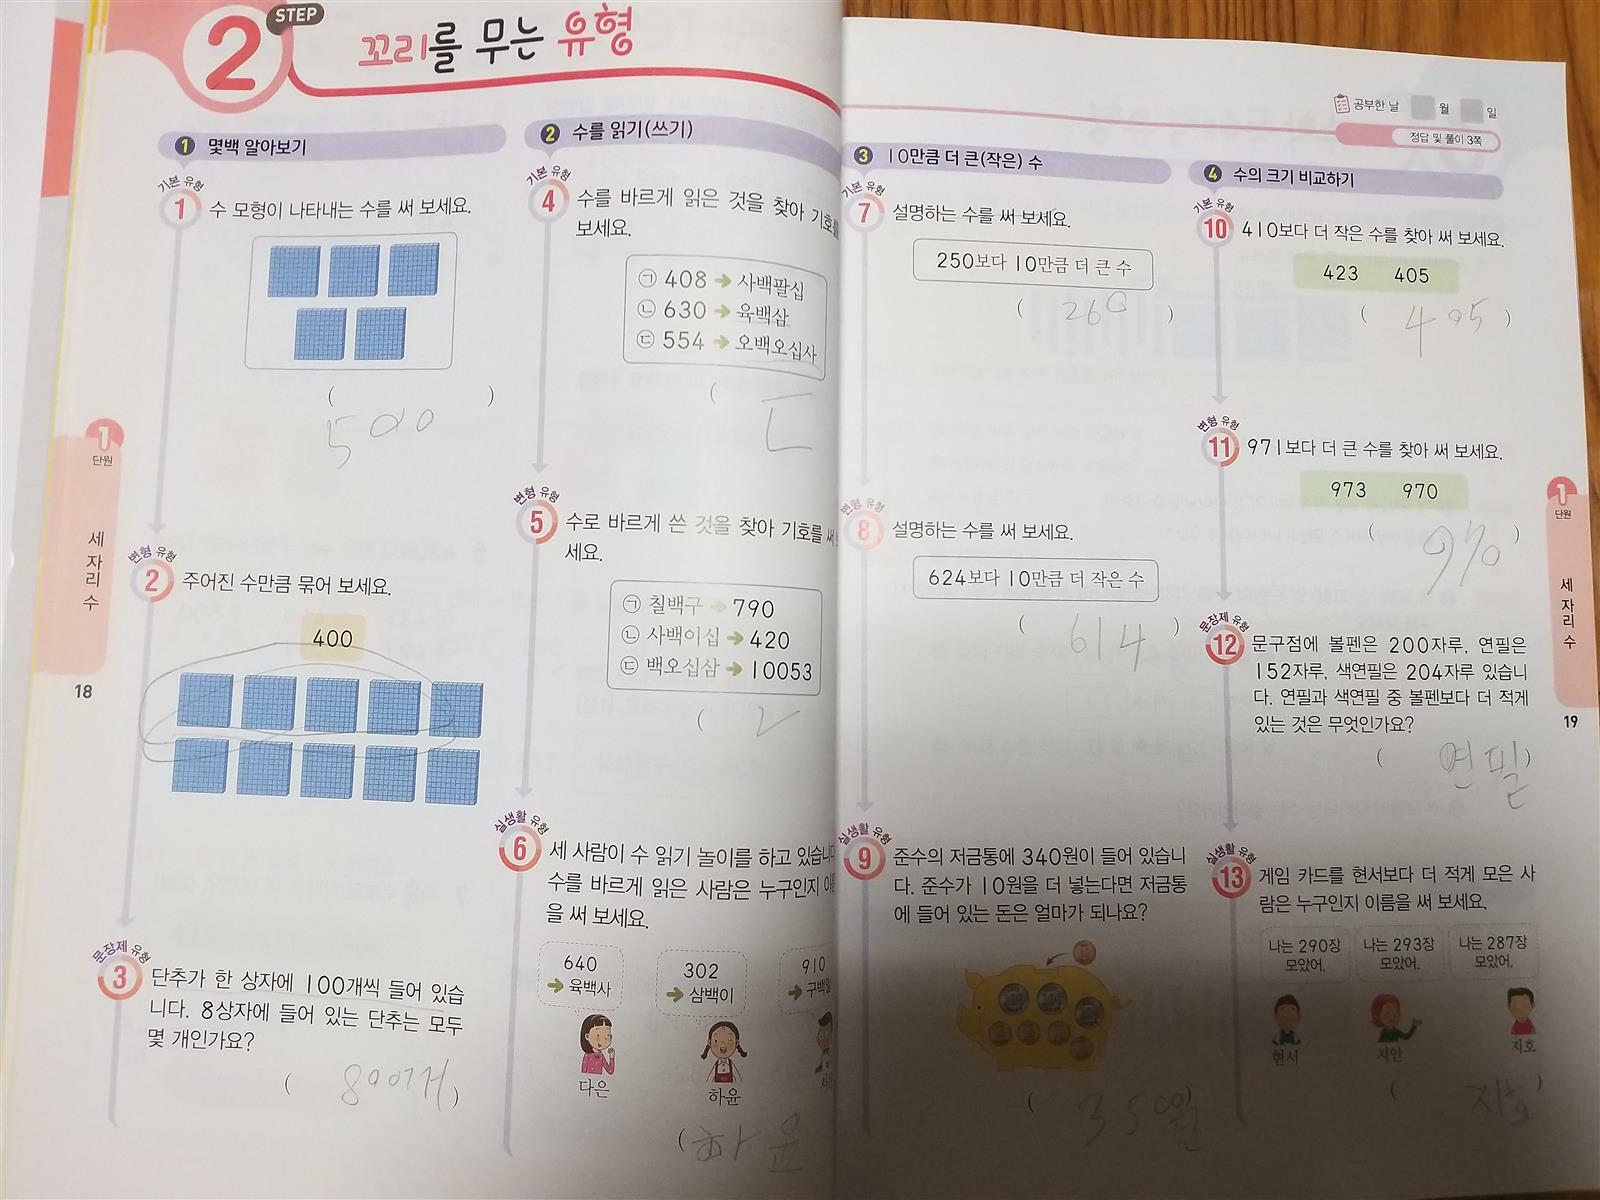 2
STEP
꼬리를 무는 유형
1 몇백 알아보기
기본 유형
1 수 모형이 나타내는 수를 써 보세요.
( )
500
변형 유형
2 주어진 수만큼 묶어 보세요.
400
문장제 유형
3 단추가 한 상자에 100개씩 들어 있습
니다. 8상자에 들어 있는 단추는 모두
몇 개인가요?
( 800개 )
1
단원
세 자리 수
18
2 수를 읽기(쓰기)
기본 유형
4 수를 바르게 읽은 것을 찾아 기호를
보세요.
㉠ 408 ➔ 사백팔십
㉡ 630 ➔ 육백삼
㉢ 554 ➔ 오백오십사
( ㄷ
변형 유형
5 수로 바르게 쓴 것을 찾아 기호를 써
세요.
㉠ 칠백구 ➔ 790
㉡ 사백이십 ➔ 420
㉢ 백오십삼 ➔ 10053
( ㄴ
실생활 유형
6 세 사람이 수 읽기 놀이를 하고 있습니다
수를 바르게 읽은 사람은 누구인지 이름
을 써 보세요.
640
➔ 육백사
302
➔ 삼백이
910
➔ 구백일
다은
하윤
( 하윤
공부한 날 월 일
정답 및 풀이 3쪽
3 10만큼 더 큰(작은) 수
기본 유형
7 설명하는 수를 써 보세요.
250보다 10만큼 더 큰 수
( 260 )
변형 유형
8 설명하는 수를 써 보세요.
624보다 10만큼 더 작은 수
( 614 )
실생활 유형
9 준수의 저금통에 340원이 들어 있습니
다. 준수가 10원을 더 넣는다면 저금통
에 들어 있는 돈은 얼마가 되나요?
( 350원 )
4 수의 크기 비교하기
기본 유형
10 410보다 더 작은 수를 찾아 써 보세요.
423 405
( 405 )
변형 유형
11 971보다 더 큰 수를 찾아 써 보세요.
973 970
( 970 )
문장제 유형
12 문구점에 볼펜은 200자루, 연필은
152자루, 색연필은 204자루 있습니
다. 연필과 색연필 중 볼펜보다 더 적게
있는 것은 무엇인가요?
( 연필 )
실생활 유형
13 게임 카드를 현서보다 더 적게 모은 사
람은 누구인지 이름을 써 보세요.
나는 290장
모았어.
나는 293장
모았어.
나는 287장
모았어.
현서
지안
지호
( 지호 )
1
단원
세 자리 수
19